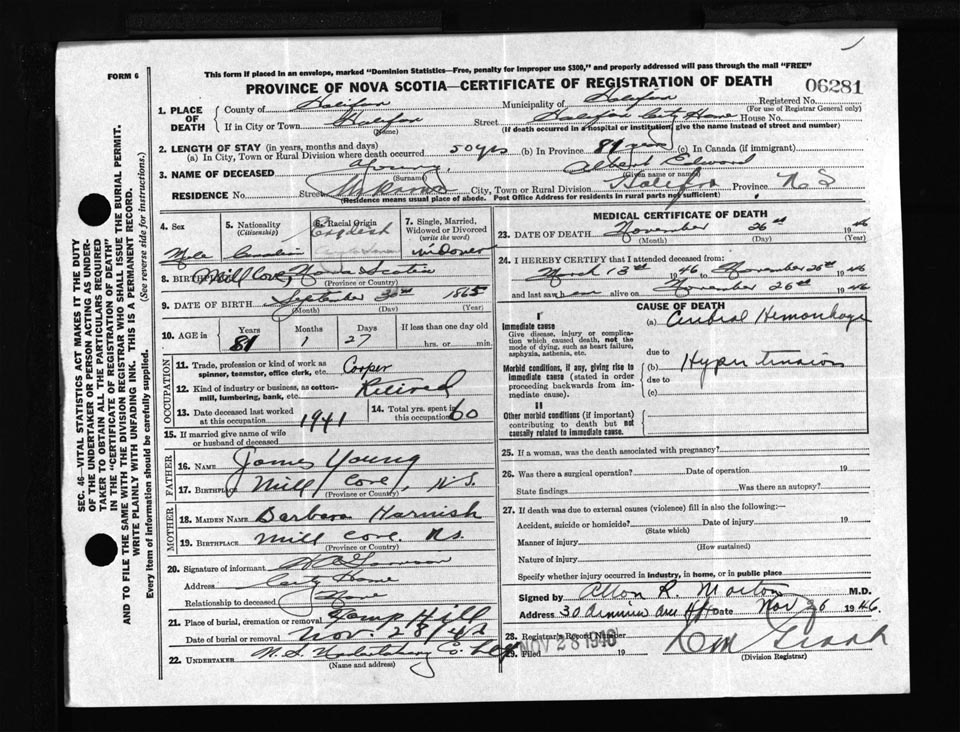 FORM 6
This form if placed in an envelope, marked "Dominion Statistics—Free, penalty for improper use $300," and properly addressed will pass through the mail "FREE"
PROVINCE OF NOVA SCOTIA—CERTIFICATE OF REGISTRATION OF DEATH
06281
1. PLACE OF DEATH
County of Halifax Municipality of Halifax Registered No.
(For use of Registrar General only)
If in City or Town Halifax Street Halifax City Home House No.
(Name) (If death occurred in a hospital or institution, give the name instead of street and number)
2. LENGTH OF STAY (in years, months and days)
(a) In City, Town or Rural Division where death occurred 50 yrs (b) In Province 81 years (c) In Canada (if immigrant)
3. NAME OF DECEASED Young, Albert Edward
(Surname) (Given name or names)
RESIDENCE No. Street City, Town or Rural Division Halifax Province N S
(Residence means usual place of abode. Post Office Address for residents in rural parts not sufficient)
4. Sex
Male
5. Nationality
(Citizenship)
Canadian
6. Racial Origin
English
7. Single, Married, Widowed or Divorced
(write the word)
widower
8. BIRTHPLACE Mill Cove, Nova Scotia
(Province or Country)
9. DATE OF BIRTH September 30th 1865
(Month) (Day) (Year)
10. AGE is Years 81 Months 1 Days 27 If less than one day old
hrs. or min.
OCCUPATION
11. Trade, profession or kind of work as spinner, teamster, office clerk, etc. Cooper
12. Kind of industry or business, as cotton-mill, lumbering, bank, etc. Retired
13. Date deceased last worked at this occupation 1941
14. Total yrs. spent in this occupation 60
15. If married give name of wife or husband of deceased
FATHER
16. NAME James Young
17. BIRTHPLACE Mill Cove, N.S.
(Province or Country)
MOTHER
18. MAIDEN NAME Barbara Harnish
19. BIRTHPLACE Mill Cove Ns.
(Province or Country)
20. Signature of informant
Address City Home
Relationship to deceased None
21. Place of burial, cremation or removal Camp Hill
Date of burial or removal Nov. 28/46
22. UNDERTAKER N. S. Undertaking Co. Ltd
(Name and address)
MEDICAL CERTIFICATE OF DEATH
23. DATE OF DEATH November 26th 1946
(Month) (Day) (Year)
24. I HEREBY CERTIFY that I attended deceased from:
March 13th 1946 to November 26th 1946
and last saw him alive on November 26th 1946
CAUSE OF DEATH
I
Immediate cause
Give disease, injury or complication which caused death, not the mode of dying, such as heart failure, asphyxia, asthenia, etc.
(a) Cerebral Hemorrhage
due to
Morbid conditions, if any, giving rise to immediate cause (stated in order proceeding backwards from immediate cause).
(b) Hypertension
due to
(c)
II
Other morbid conditions (if important) contributing to death but not causally related to immediate cause.
25. If a woman, was the death associated with pregnancy?
26. Was there a surgical operation? Date of operation 19
State findings Was there an autopsy?
27. If death was due to external causes (violence) fill in also the following:—
Accident, suicide or homicide? Date of injury 19
(State which)
Manner of injury
(How sustained)
Nature of injury
Specify whether injury occurred in industry, in home, or in public place
Signed by Allan R. Morton M.D.
Address Date Nov 26 1946.
28. Registrar's Record Number
29. Filed NOV 28 1946 19
(Division Registrar)
SEC. 46—VITAL STATISTICS ACT MAKES IT THE DUTY OF THE UNDERTAKER OR PERSON ACTING AS UNDERTAKER TO OBTAIN ALL THE PARTICULARS REQUIRED IN THE "CERTIFICATE OF REGISTRATION OF DEATH" AND TO FILE THE SAME WITH THE DIVISION REGISTRAR WHO SHALL ISSUE THE BURIAL PERMIT.
WRITE PLAINLY WITH UNFADING INK. THIS IS A PERMANENT RECORD.
Every item of information should be carefully supplied. (See reverse side for instructions.)